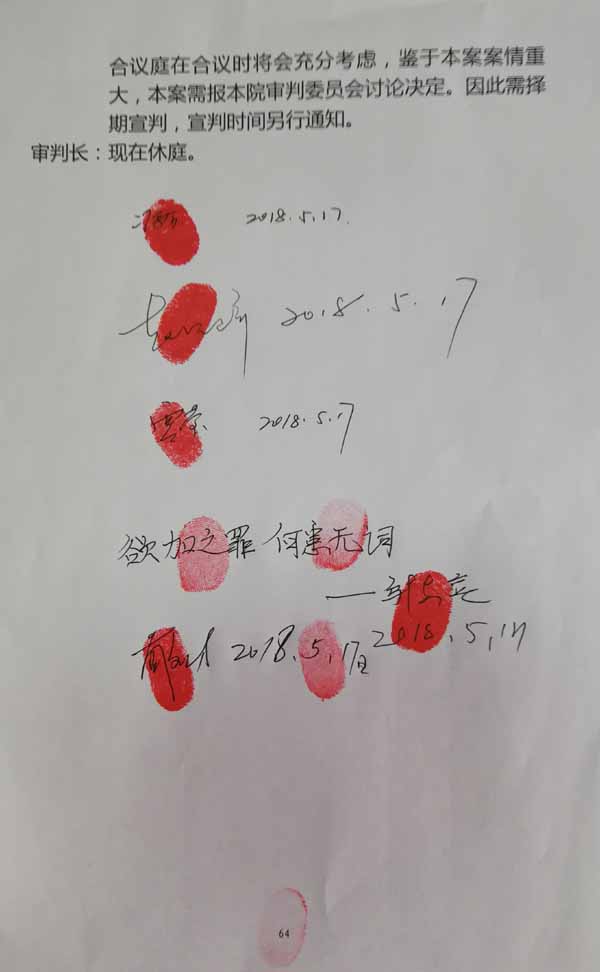 合议庭在合议时将会充分考虑，鉴于本案案情重
大，本案需报本院审判委员会讨论决定。因此需择
期宣判，宣判时间另行通知。
审判长：现在休庭。
2018.5.17.
2018.5.17
2018.5.17
欲加之罪 何患无词
2018.5.17日
2018.5.17
64